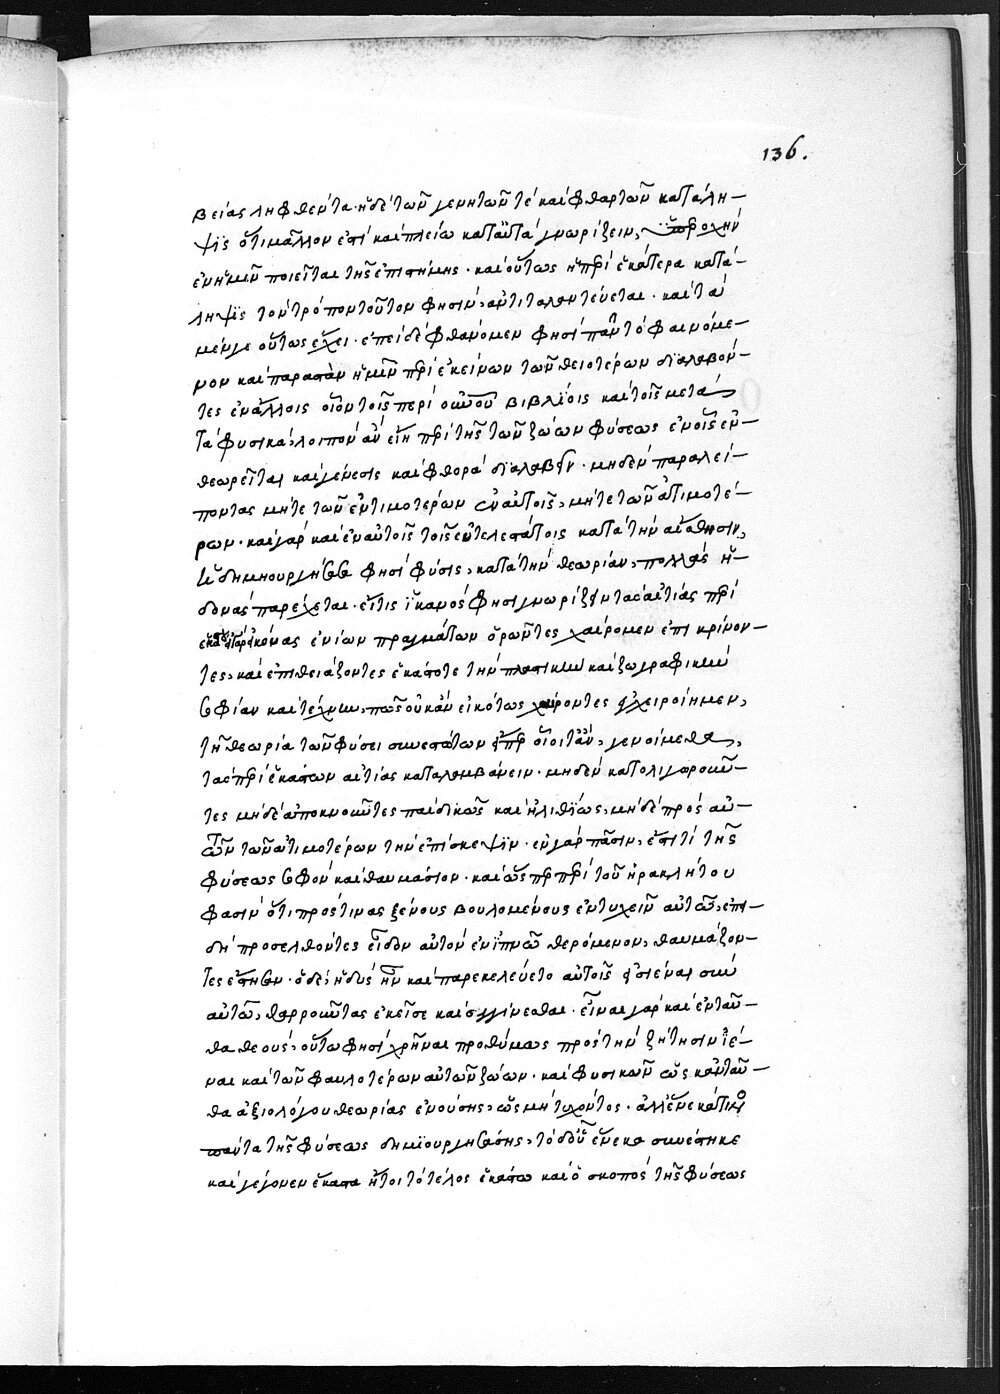 136.
βείας ληφθέντα· ἡ δὲ τῶν γενητῶν τὲ καὶ φθαρτῶν κατάλη-
ψις ὅτι μᾶλλον ἐπὶ καὶ πλείω κατ' αὐτὰ γνωρίζειν, ὑπεροχὴν
ἐν ἡμῖν ποιεῖται τῆς ἐπιστήμης· καὶ οὕτως ἡ περὶ ἑκάτερα κατά-
ληψις τὸν τρόπον τοῦτον φησὶν, ἀντιταλαντεύεται· καὶ ταῦ
μέν γε οὕτως ἔχει· ἐπεὶ δὲ φθάνομεν φησὶ πᾶν τὸ φαινόμε-
νον καὶ παραστὰν ἡμῖν περὶ ἐκείνων τῶν θειοτέρων διαλαβόν-
τες ἐν ἄλλοις οἷον τοῖς περὶ οὐνοῦ βιβλίοις καὶ τοῖς μετὰ
τὰ φυσικά, λοιπὸν ἂν εἴη περὶ τῆς τῶν ζώων φύσεως ἐν οἷς ἐν-
θεωρεῖται καὶ γένεσις καὶ φθορὰ διαλαβεῖν· μηδὲν παραλεί-
ποντας μήτε τῶν ἐντιμοτέρων ἐν αὐτοῖς, μήτε τῶν ἀτιμοτέ-
ρων· καὶ γὰρ καὶ ἐν αὐτοῖς τοῖς εὐτελεστάτοις κατὰ τὴν αἴσθησιν,
ἡ δημιουργήσασα φησὶ φύσις, κατὰ τὴν θεωρίαν, πολλὰς ἡ-
δονὰς παρέχεται· εἴ τις ἱκανὸς φησὶ γνωρίζειν τὰς αἰτίας περὶ
εἰκόνας ἐνίων πραγμάτων ὁρῶντες χαίρομεν ἐπικρίνον-
τες, καὶ ἐπιθειάζοντες ἑκάστοτε τὴν πλαστικὴν καὶ ζωγραφικὴν
σοφίαν καὶ τέχνην, πῶς οὐκ ἂν εἰκότως χαίροντες ἐγχειροίημεν,
τῇ θεωρία τῶν φύσει συνεστώτων εἴπερ οἷοί τ' ἂν, γενοίμεθα,
τὰς περὶ ἑκάστων αἰτίας καταλαμβάνειν· μηδὲν κατολιγωροῦν-
τες μηδὲ ἀποκνοῦντες παιδικῶς καὶ ἠλιθίως, μηδὲ πρὸς αὐ-
τῶν τῶν ἀτιμοτέρων τὴν ἐπίσκεψιν· ἐν γὰρ πᾶσιν, ἔστι τὶ τῆς
φύσεως σοφὸν καὶ θαυμάσιον· καὶ ὥσπερ περὶ τοῦ ἡρακλήτου
φασὶν ὅτι πρὸς τινας ξένους βουλομένους ἐντυχεῖν αὐτῶ, ἐπι-
δὴ προσελθόντες εἶδον αὐτὸν ἐν ἰπνῶ θερόμενον, θαυμάζον-
τες ἔστησαν· ὁ δὲ, ἡδὺς ἦν καὶ παρεκελεύετο αὐτοῖς εἰσιέναι σὺν
αὐτῶ, θαρροῦντας ἐκεῖσε καὶ συγγίνεσθαι· εἶναι γὰρ καὶ ἐνταῦ-
θα θεοὺς, οὕτω φησὶ χρῆναι προθύμως πρὸς τὴν ζήτησιν ἰέ-
ναι καὶ τῶν φαυλοτέρων αὐτῶν ζώων· καὶ φυσικῶν ὡς κἀνταῦ-
θα ἀξιολόγου θεωρίας ἐνούσης, ὡς μὴ τυχόντος· ἀλλ' ἕνεκά τινος
πάντα τῆς φύσεως δημιουργησάσης, τὸ δ' οὗ ἕνεκα συνέστηκε
καὶ γέγονεν ἕκαστα ἤτοι τὸ τέλος ἑκάστω καὶ ὁ σκοπὸς τῆς φύσεως